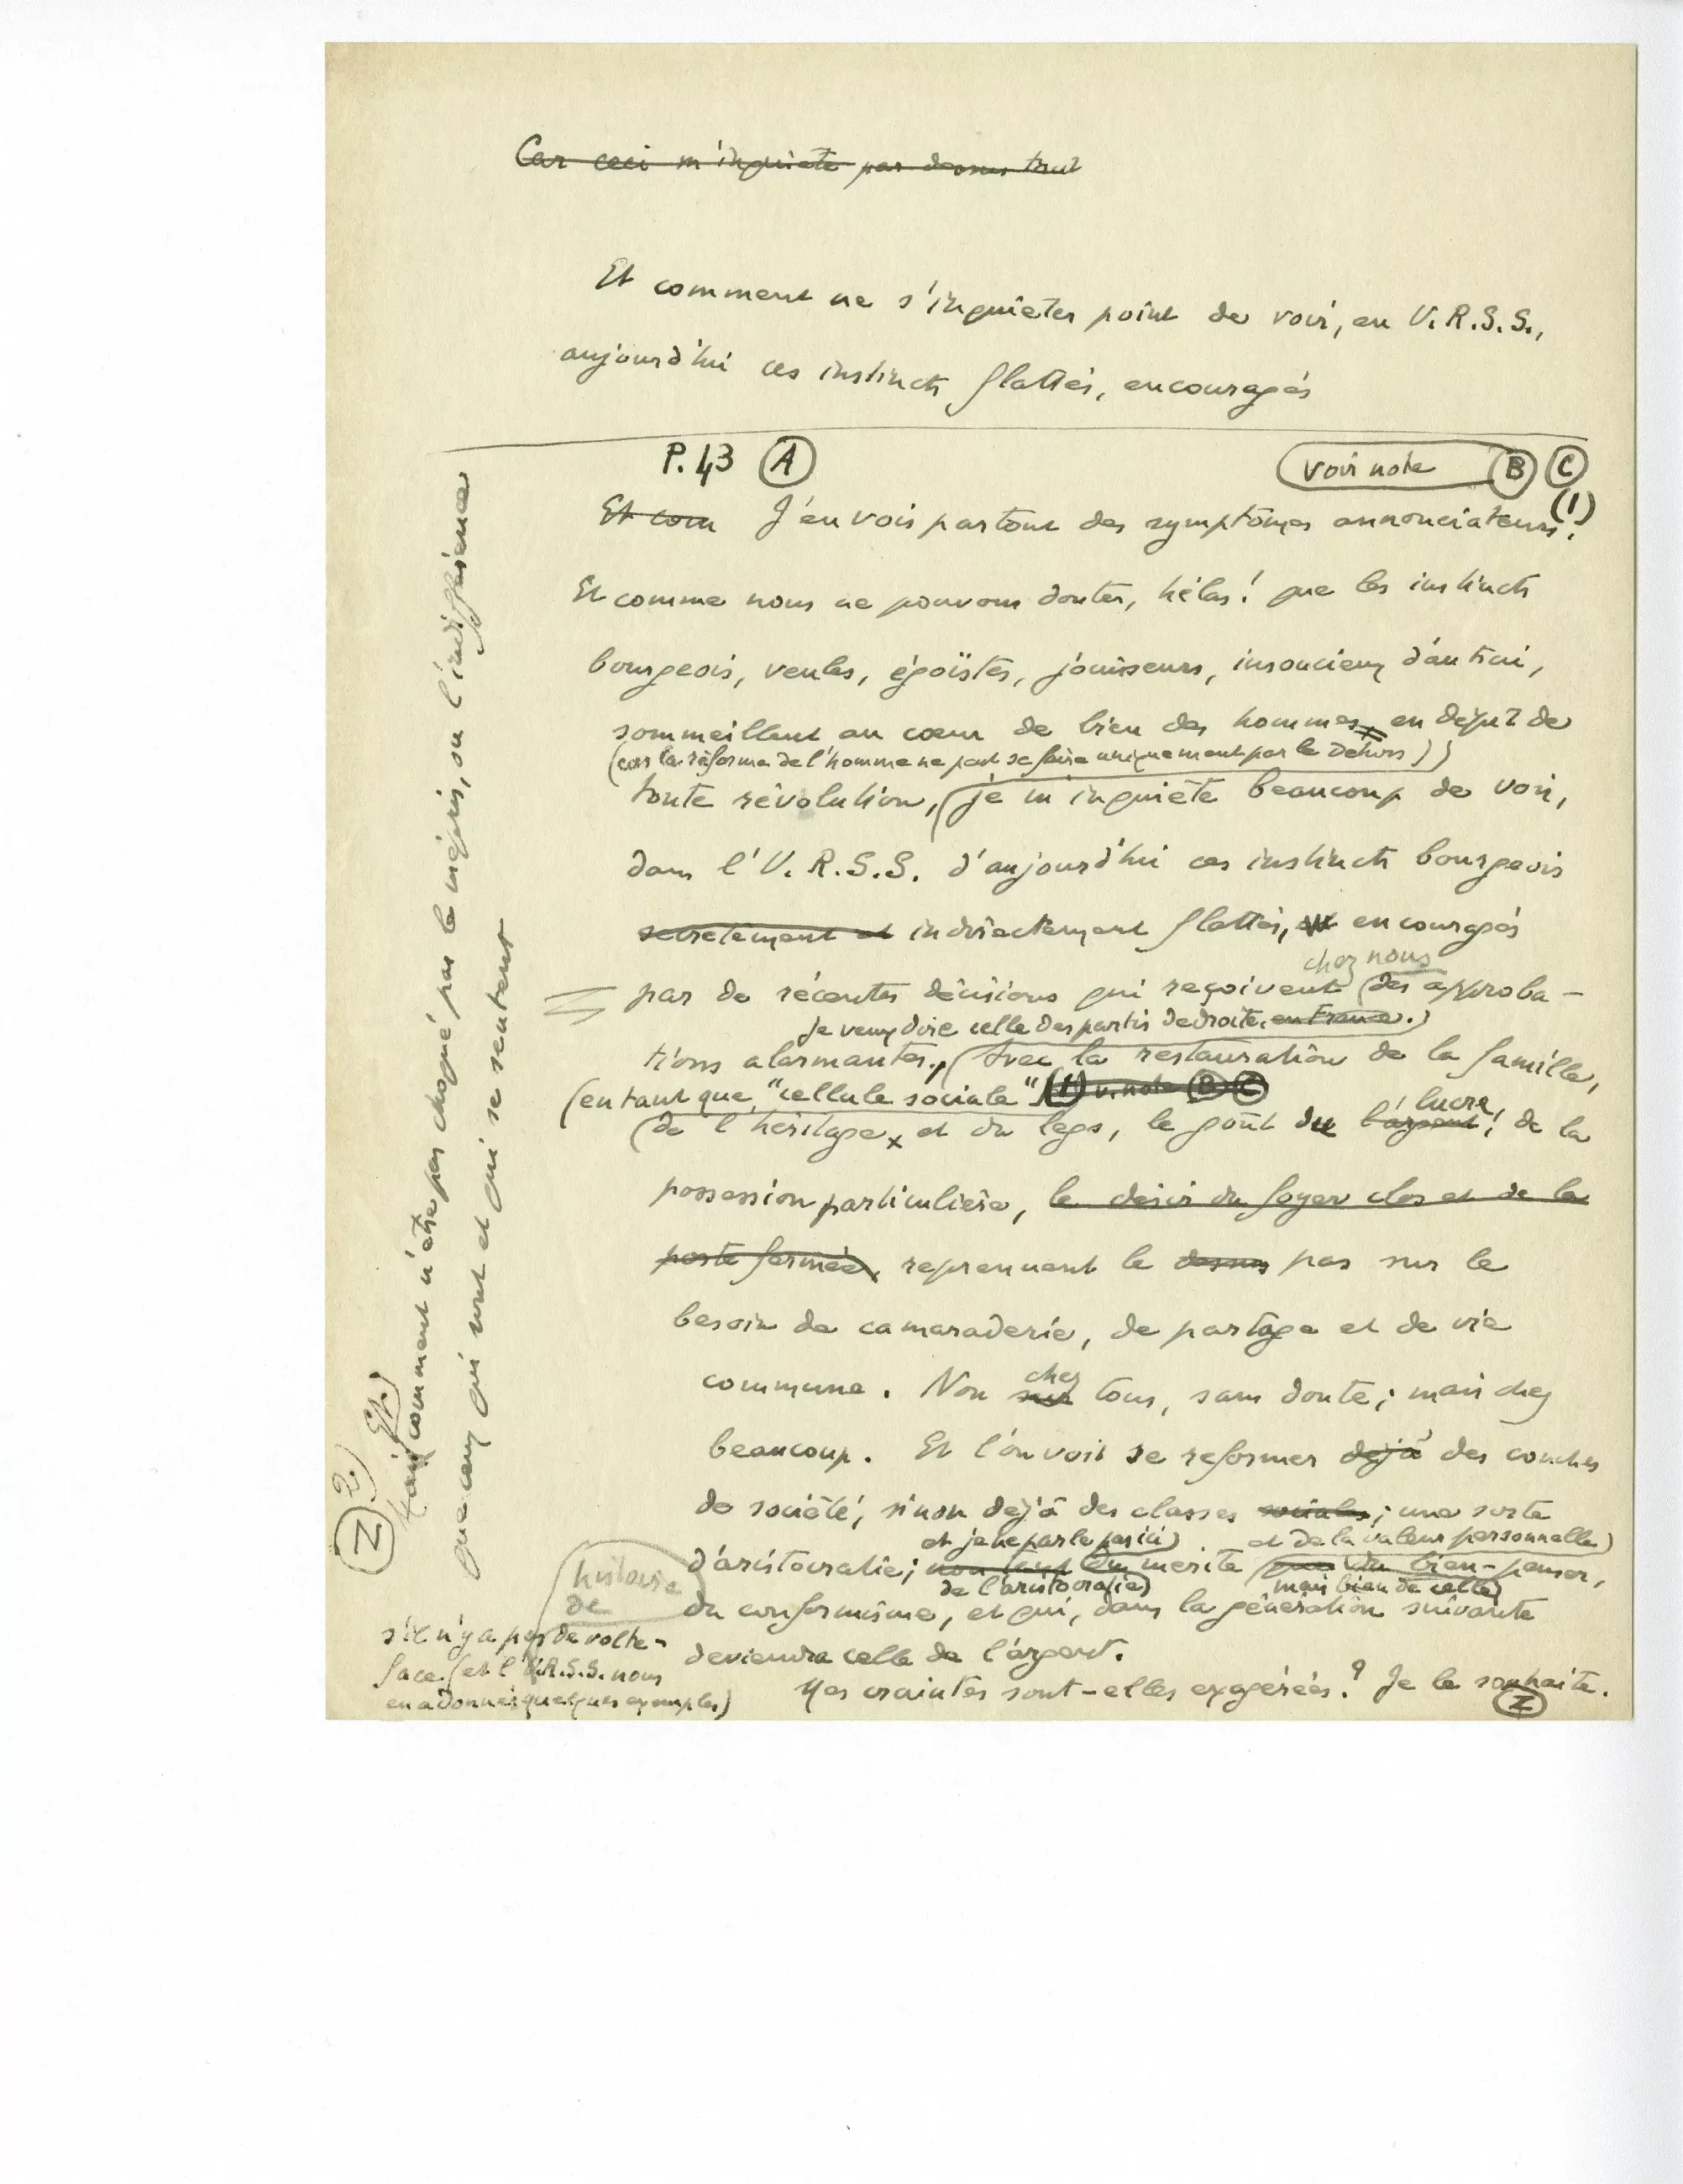 Car ceci m'inquiète par dessus tout
Et comment ne s'inquiéter point de voir, en U.R.S.S.,
aujourd'hui ces instincts flattés, encouragés
P. 43 (A)
voir note (B) (C)
Et com J'en vois partout des symptômes annonciateurs (1).
Et comme nous ne pouvons douter, hélas! que les instincts
bourgeois, veules, égoïstes, jouisseurs, insoucieux d'autrui,
sommeillent au cœur de bien des hommes, en dépit de
(car la réforme de l'homme ne peut se faire uniquement par le dehors)
toute révolution, je m'inquiète beaucoup de voir,
dans l'U.R.S.S. d'aujourd'hui ces instincts bourgeois
secrètement et indirectement flattés, et encouragés
chez nous
par de récentes décisions qui reçoivent des approba-
je veux dire celle des partis de droite, en France.)
tions alarmantes. Avec la restauration de la famille,
(en tant que "cellule sociale") (1) v. note (B) (C)
lucre,
de l'héritage, et du legs, le goût du l'argent, de la
possession particulière, le désir du foyer clos et de la
porte fermée, reprennent le dessus pas sur le
besoin de camaraderie, de partage et de vie
chez
commune. Non sur tous, sans doute; mais chez
beaucoup. Et l'on voit se reformer déjà des couches
de société, sinon déjà des classes sociales; une sorte
et je ne parle pas ici) et de la valeur personnelle)
d'aristocratie; du mérite du bien-penser,
de l'aristocratie) mais bien de celle)
du conformisme, et qui, dans la génération suivante
deviendra celle de l'argent.
Mes craintes sont-elles exagérées? Je le souhaite.
(Z)
histoire
de
s'il n'y a pas de volte-
face (et l'U.R.S.S. nous
en a donné quelques exemples)
(Z) 2.) Et.)
Mais comment n'être pas choqué par le mépris, ou l'indifférence
que ceux qui sont et qui se sentent